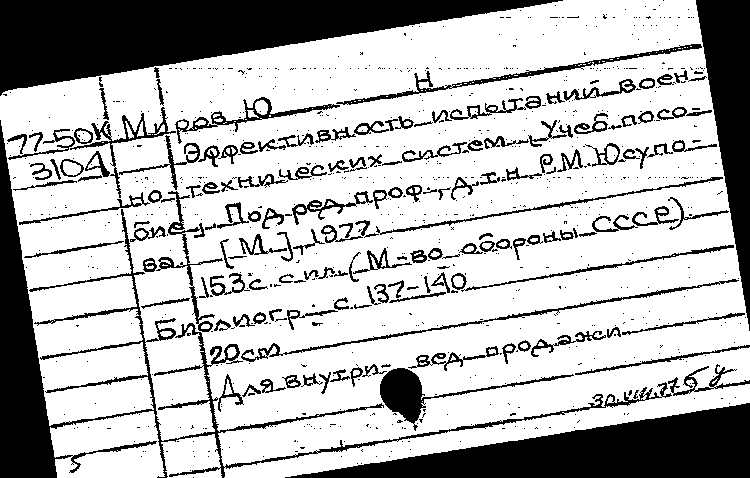 Н
77-50К Миров, Ю
3104 Эффективность испытаний воен-
но-технических систем [Учеб. посо-
бие] Под ред. проф., д.т.н. Р.М. Юсупо-
ва. [М.], 1977.
153 с. с ил. (М-во обороны СССР)
Библиогр.: с. 137-140
20 см
Для внутри-вед. продажи
30.VIII.77 б у
5